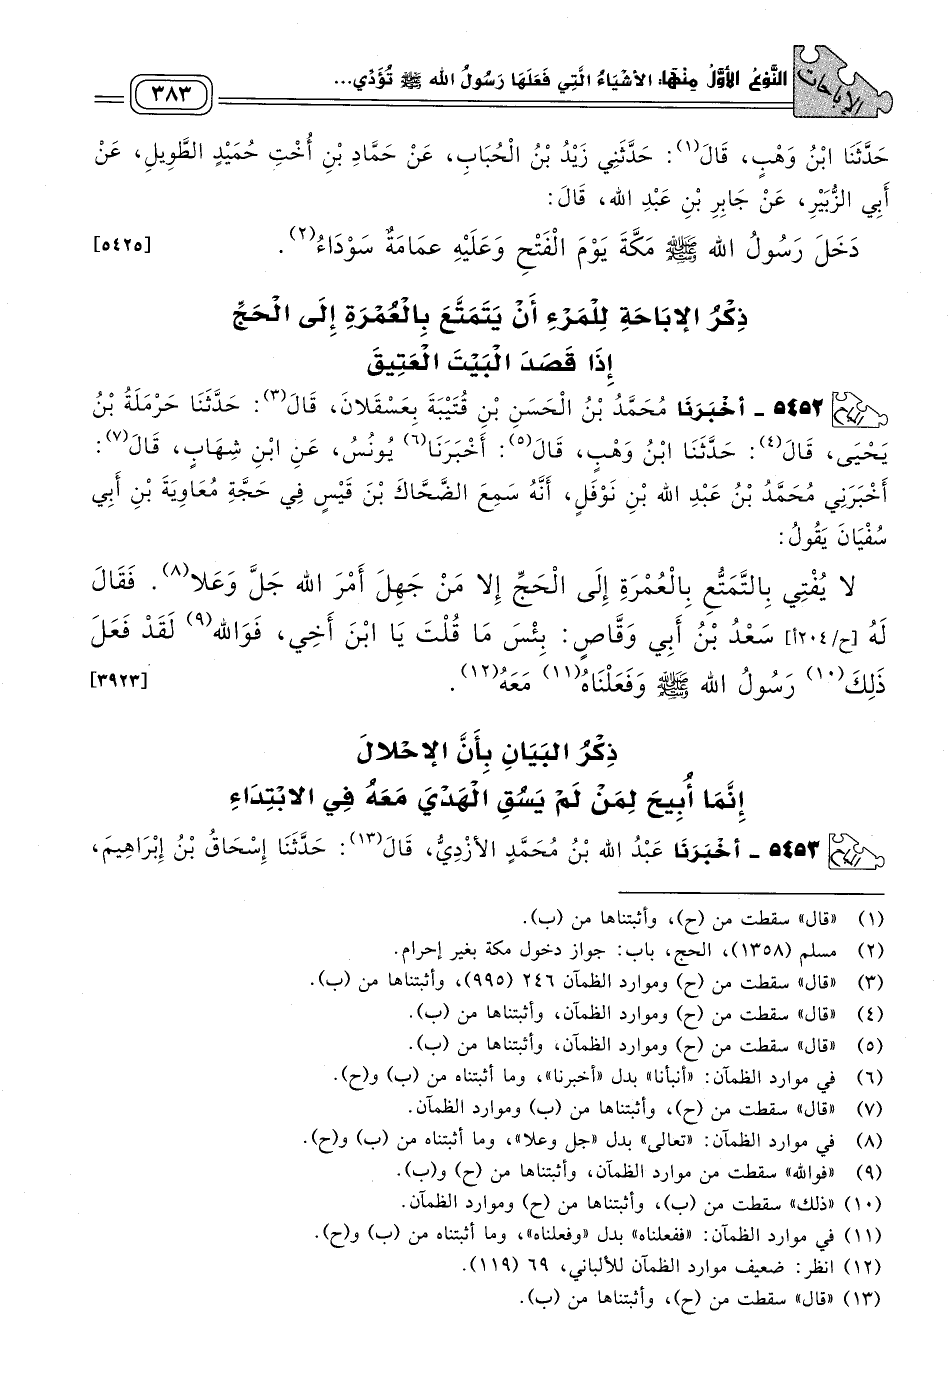 الإباحات
النَّوْعُ الأَوَّلُ مِنْهَا: الأَشْيَاءُ الَّتِي فَعَلَهَا رَسُولُ الله ﷺ تُؤَدِّي...
٣٨٣
حَدَّثَنَا ابْنُ وَهْبٍ، قَالَ(١): حَدَّثَنِي زَيْدُ بْنُ الْحُبَابِ، عَنْ حَمَّادِ بْنِ أُخْتِ حُمَيْدٍ الطَّوِيلِ، عَنْ
أَبِي الزُّبَيْرِ، عَنْ جَابِرِ بْنِ عَبْدِ الله، قَالَ:
دَخَلَ رَسُولُ الله ﷺ مَكَّةَ يَوْمَ الْفَتْحِ وَعَلَيْهِ عمَامَةٌ سَوْدَاءُ(٢). [٥٤٢٥]
ذِكْرُ الإبَاحَةِ لِلْمَرْءِ أَنْ يَتَمَتَّعَ بِالْعُمْرَةِ إِلَى الْحَجِّ
إِذَا قَصَدَ الْبَيْتَ الْعَتِيقَ
٥٤٥٢ - أخْبَرَنَا مُحَمَّدُ بْنُ الْحَسَنِ بْنِ قُتَيْبَةَ بِعَسْقَلانَ، قَالَ(٣): حَدَّثَنَا حَرْمَلَةُ بْنُ
يَحْيَى، قَالَ(٤): حَدَّثَنَا ابْنُ وَهْبٍ، قَالَ(٥): أَخْبَرَنَا(٦) يُونُسُ، عَنِ ابْنِ شِهَابٍ، قَالَ(٧):
أَخْبَرَنِي مُحَمَّدُ بْنُ عَبْدِ الله بْنِ نَوْفَلٍ، أَنَّهُ سَمِعَ الضَّحَّاكَ بْنَ قَيْسٍ فِي حَجَّةِ مُعَاوِيَةَ بْنِ أَبِي
سُفْيَانَ يَقُولُ:
لا يُفْتِي بِالتَّمَتُّعِ بِالْعُمْرَةِ إِلَى الْحَجِّ إِلا مَنْ جَهِلَ أَمْرَ الله جَلَّ وَعَلا(٨). فَقَالَ
لَهُ [ح/٢٠٤أ] سَعْدُ بْنُ أَبِي وَقَّاصٍ: بِئْسَ مَا قُلْتَ يَا ابْنَ أَخِي، فَوَالله(٩) لَقَدْ فَعَلَ
ذَلِكَ(١٠) رَسُولُ الله ﷺ وَفَعَلْنَاهُ(١١) مَعَهُ(١٢). [٣٩٢٣]
ذِكْرُ البَيَانِ بِأَنَّ الإحْلالَ
إِنَّمَا أُبِيحَ لِمَنْ لَمْ يَسُقِ الْهَدْيَ مَعَهُ فِي الابْتِدَاءِ
٥٤٥٣ - أخْبَرَنَا عَبْدُ الله بْنُ مُحَمَّدٍ الأَزْدِيُّ، قَالَ(١٣): حَدَّثَنَا إِسْحَاقُ بْنُ إِبْرَاهِيمَ،
(١) «قال» سقطت من (ح)، وأثبتناها من (ب).
(٢) مسلم (١٣٥٨)، الحج، باب: جواز دخول مكة بغير إحرام.
(٣) «قال» سقطت من (ح) وموارد الظمآن ٢٤٦ (٩٩٥)، وأثبتناها من (ب).
(٤) «قال» سقطت من (ح) وموارد الظمآن، وأثبتناها من (ب).
(٥) «قال» سقطت من (ح) وموارد الظمآن، وأثبتناها من (ب).
(٦) في موارد الظمآن: «أنبأنا» بدل «أخبرنا»، وما أثبتناه من (ب) و(ح).
(٧) «قال» سقطت من (ح)، وأثبتناها من (ب) وموارد الظمآن.
(٨) في موارد الظمآن: «تعالى» بدل «جل وعلا»، وما أثبتناه من (ب) و(ح).
(٩) «فوالله» سقطت من موارد الظمآن، وأثبتناها من (ح) و(ب).
(١٠) «ذلك» سقطت من (ب)، وأثبتناها من (ح) وموارد الظمآن.
(١١) في موارد الظمآن: «ففعلناه» بدل «وفعلناه»، وما أثبتناه من (ب) و(ح).
(١٢) انظر: ضعيف موارد الظمآن للألباني، ٦٩ (١١٩).
(١٣) «قال» سقطت من (ح)، وأثبتناها من (ب).